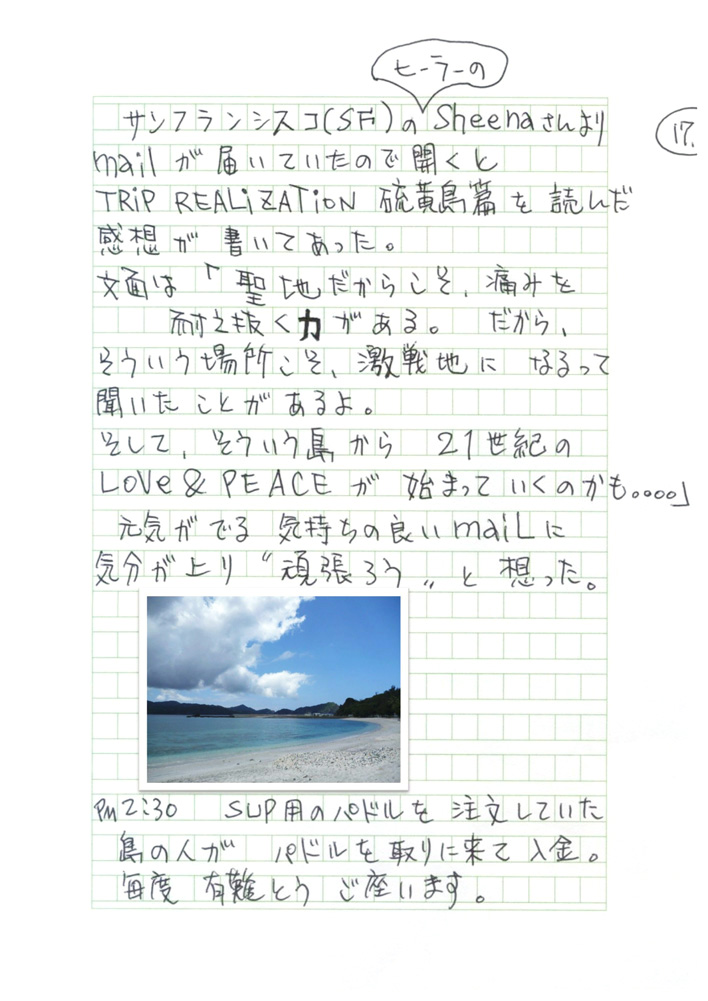 ヒーラーの
サンフランシスコ(SF)の Sheenaさんより
17.
mailが届いていたので開くと
TRiP REALiZATiON 硫黄島篇を読んだ
感想が書いてあった。
文面は「聖地だからこそ、痛みを
耐え抜く力がある。だから、
そういう場所こそ、激戦地になるって
聞いたことがあるよ。
そして、そういう島から 21世紀の
LOVE & PEACEが始まっていくのかも。。。。」
元気がでる気持ちの良いmaiLに
気分が上り〝頑張ろう〟と想った。
PM2:30 SUP用のパドルを注文していた
島の人が パドルを取りに来て入金。
毎度 有難とう ご座います。